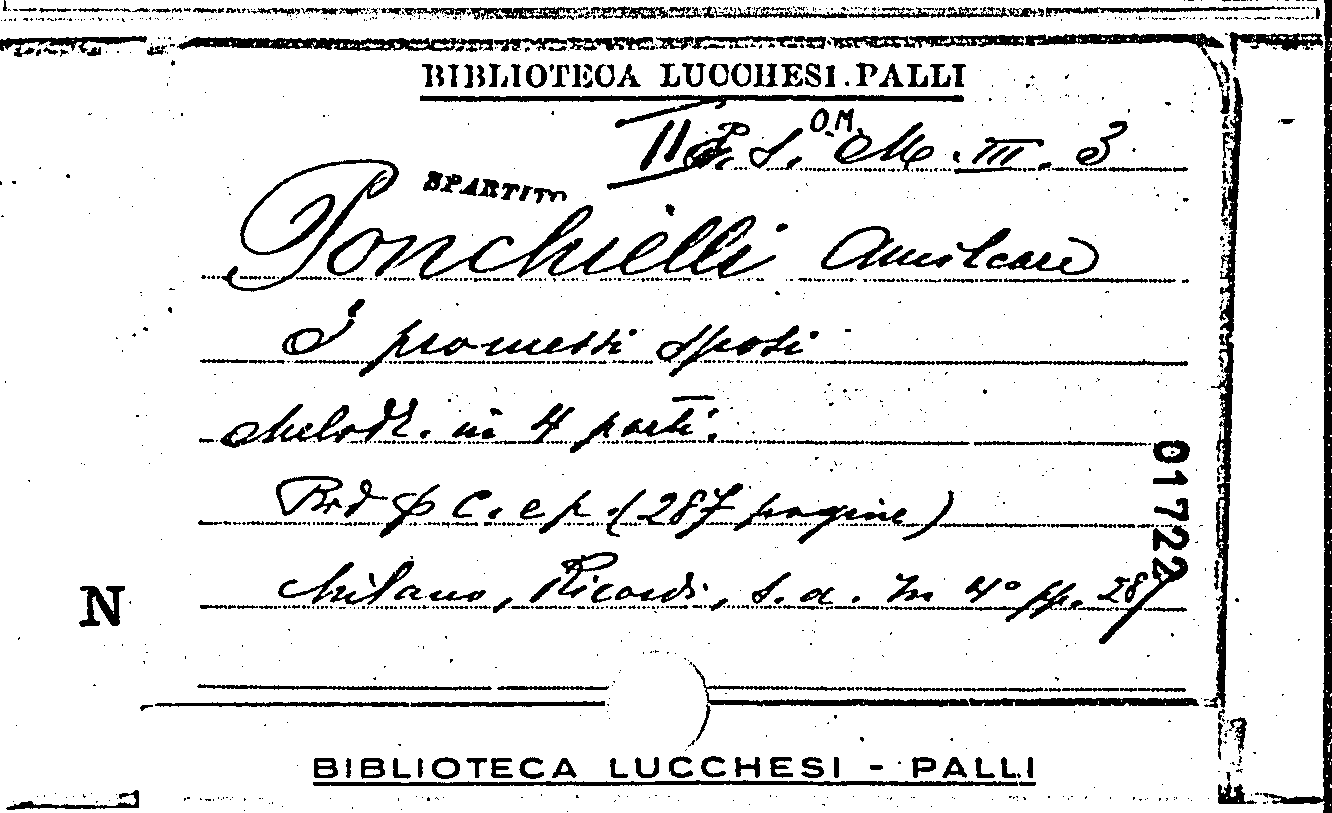 BIBLIOTECA LUCCHESI.PALLI
O.M.
II P. S. M. III. 3
SPARTITO
Ponchielli Amilcare
I promessi sposi
Melodr. in 4 parti.
Rid p C. e p. (287 pagine)
Milano, Ricordi, s. a. In 4° pp. 287
01722
N
BIBLIOTECA LUCCHESI - PALLI